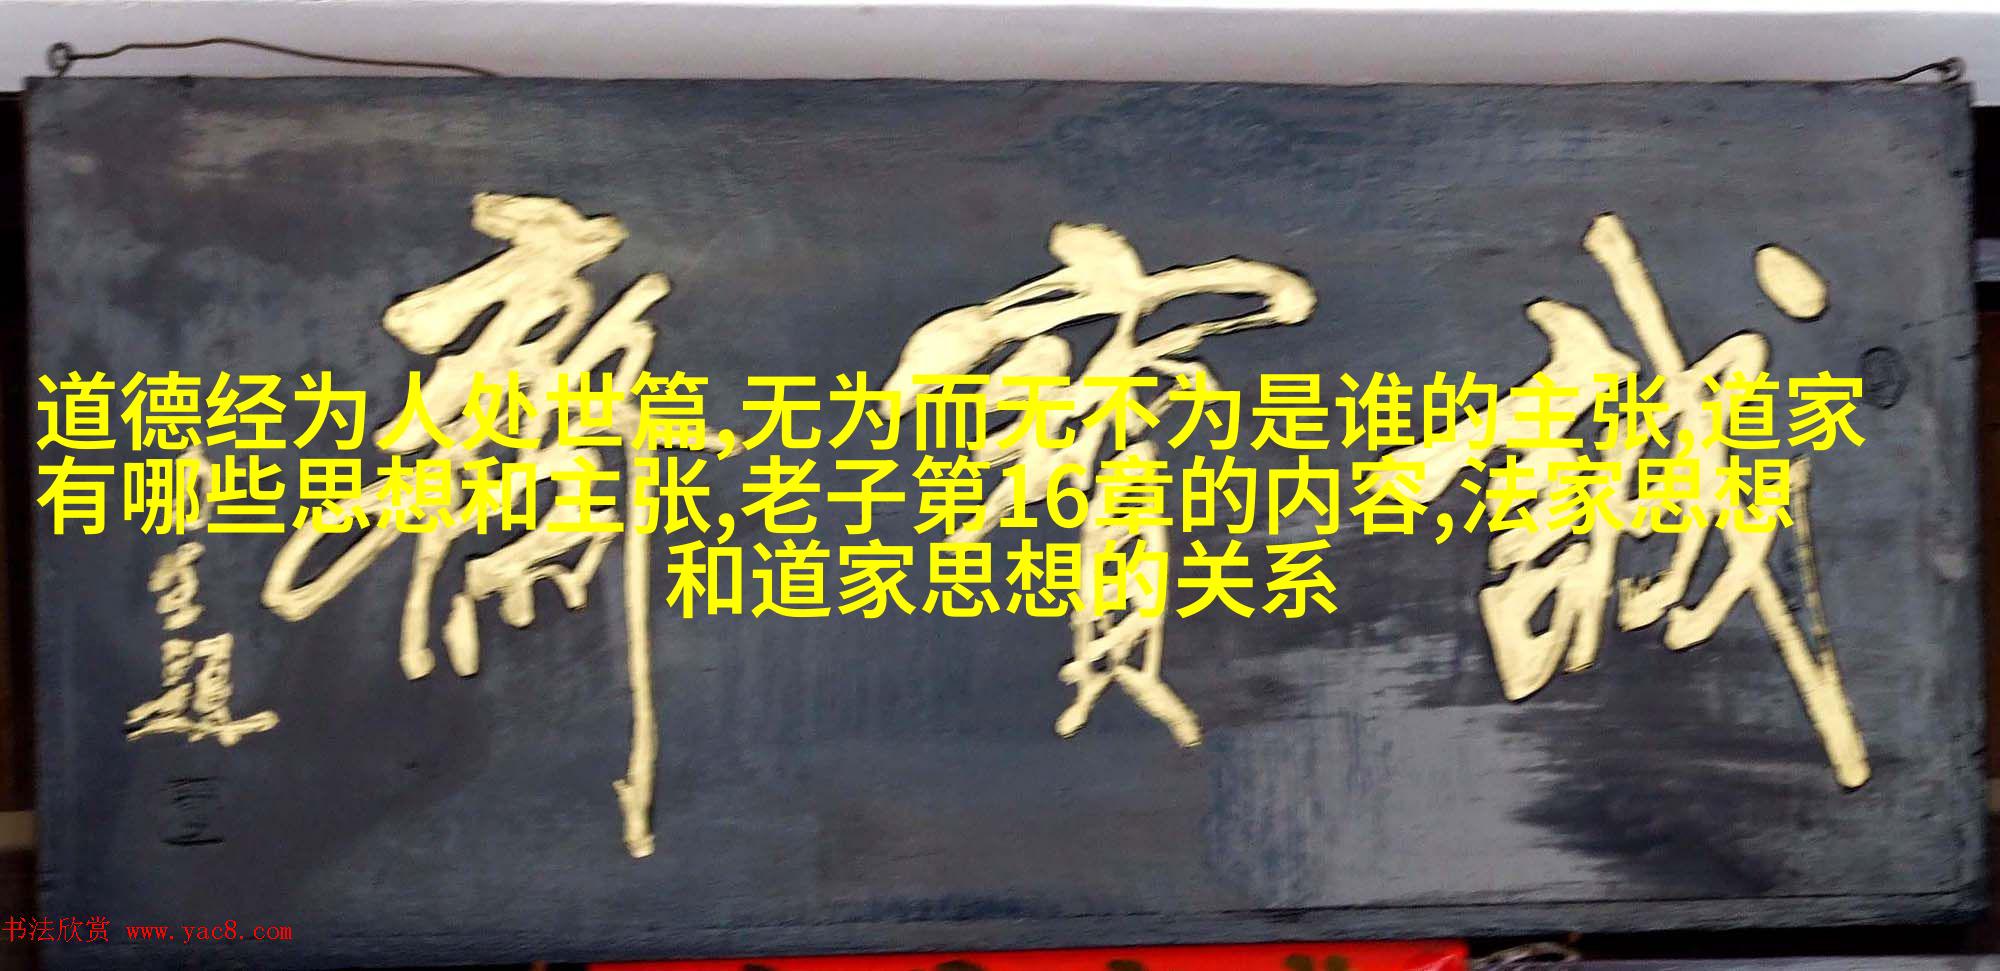 誠寶齋
道德经为人处世篇,无为而无不为是谁的主张,道家
有哪些思想和主张,老子第16章的内容,法家思想
和道家思想的关系
书法欣赏 www.yac8.com